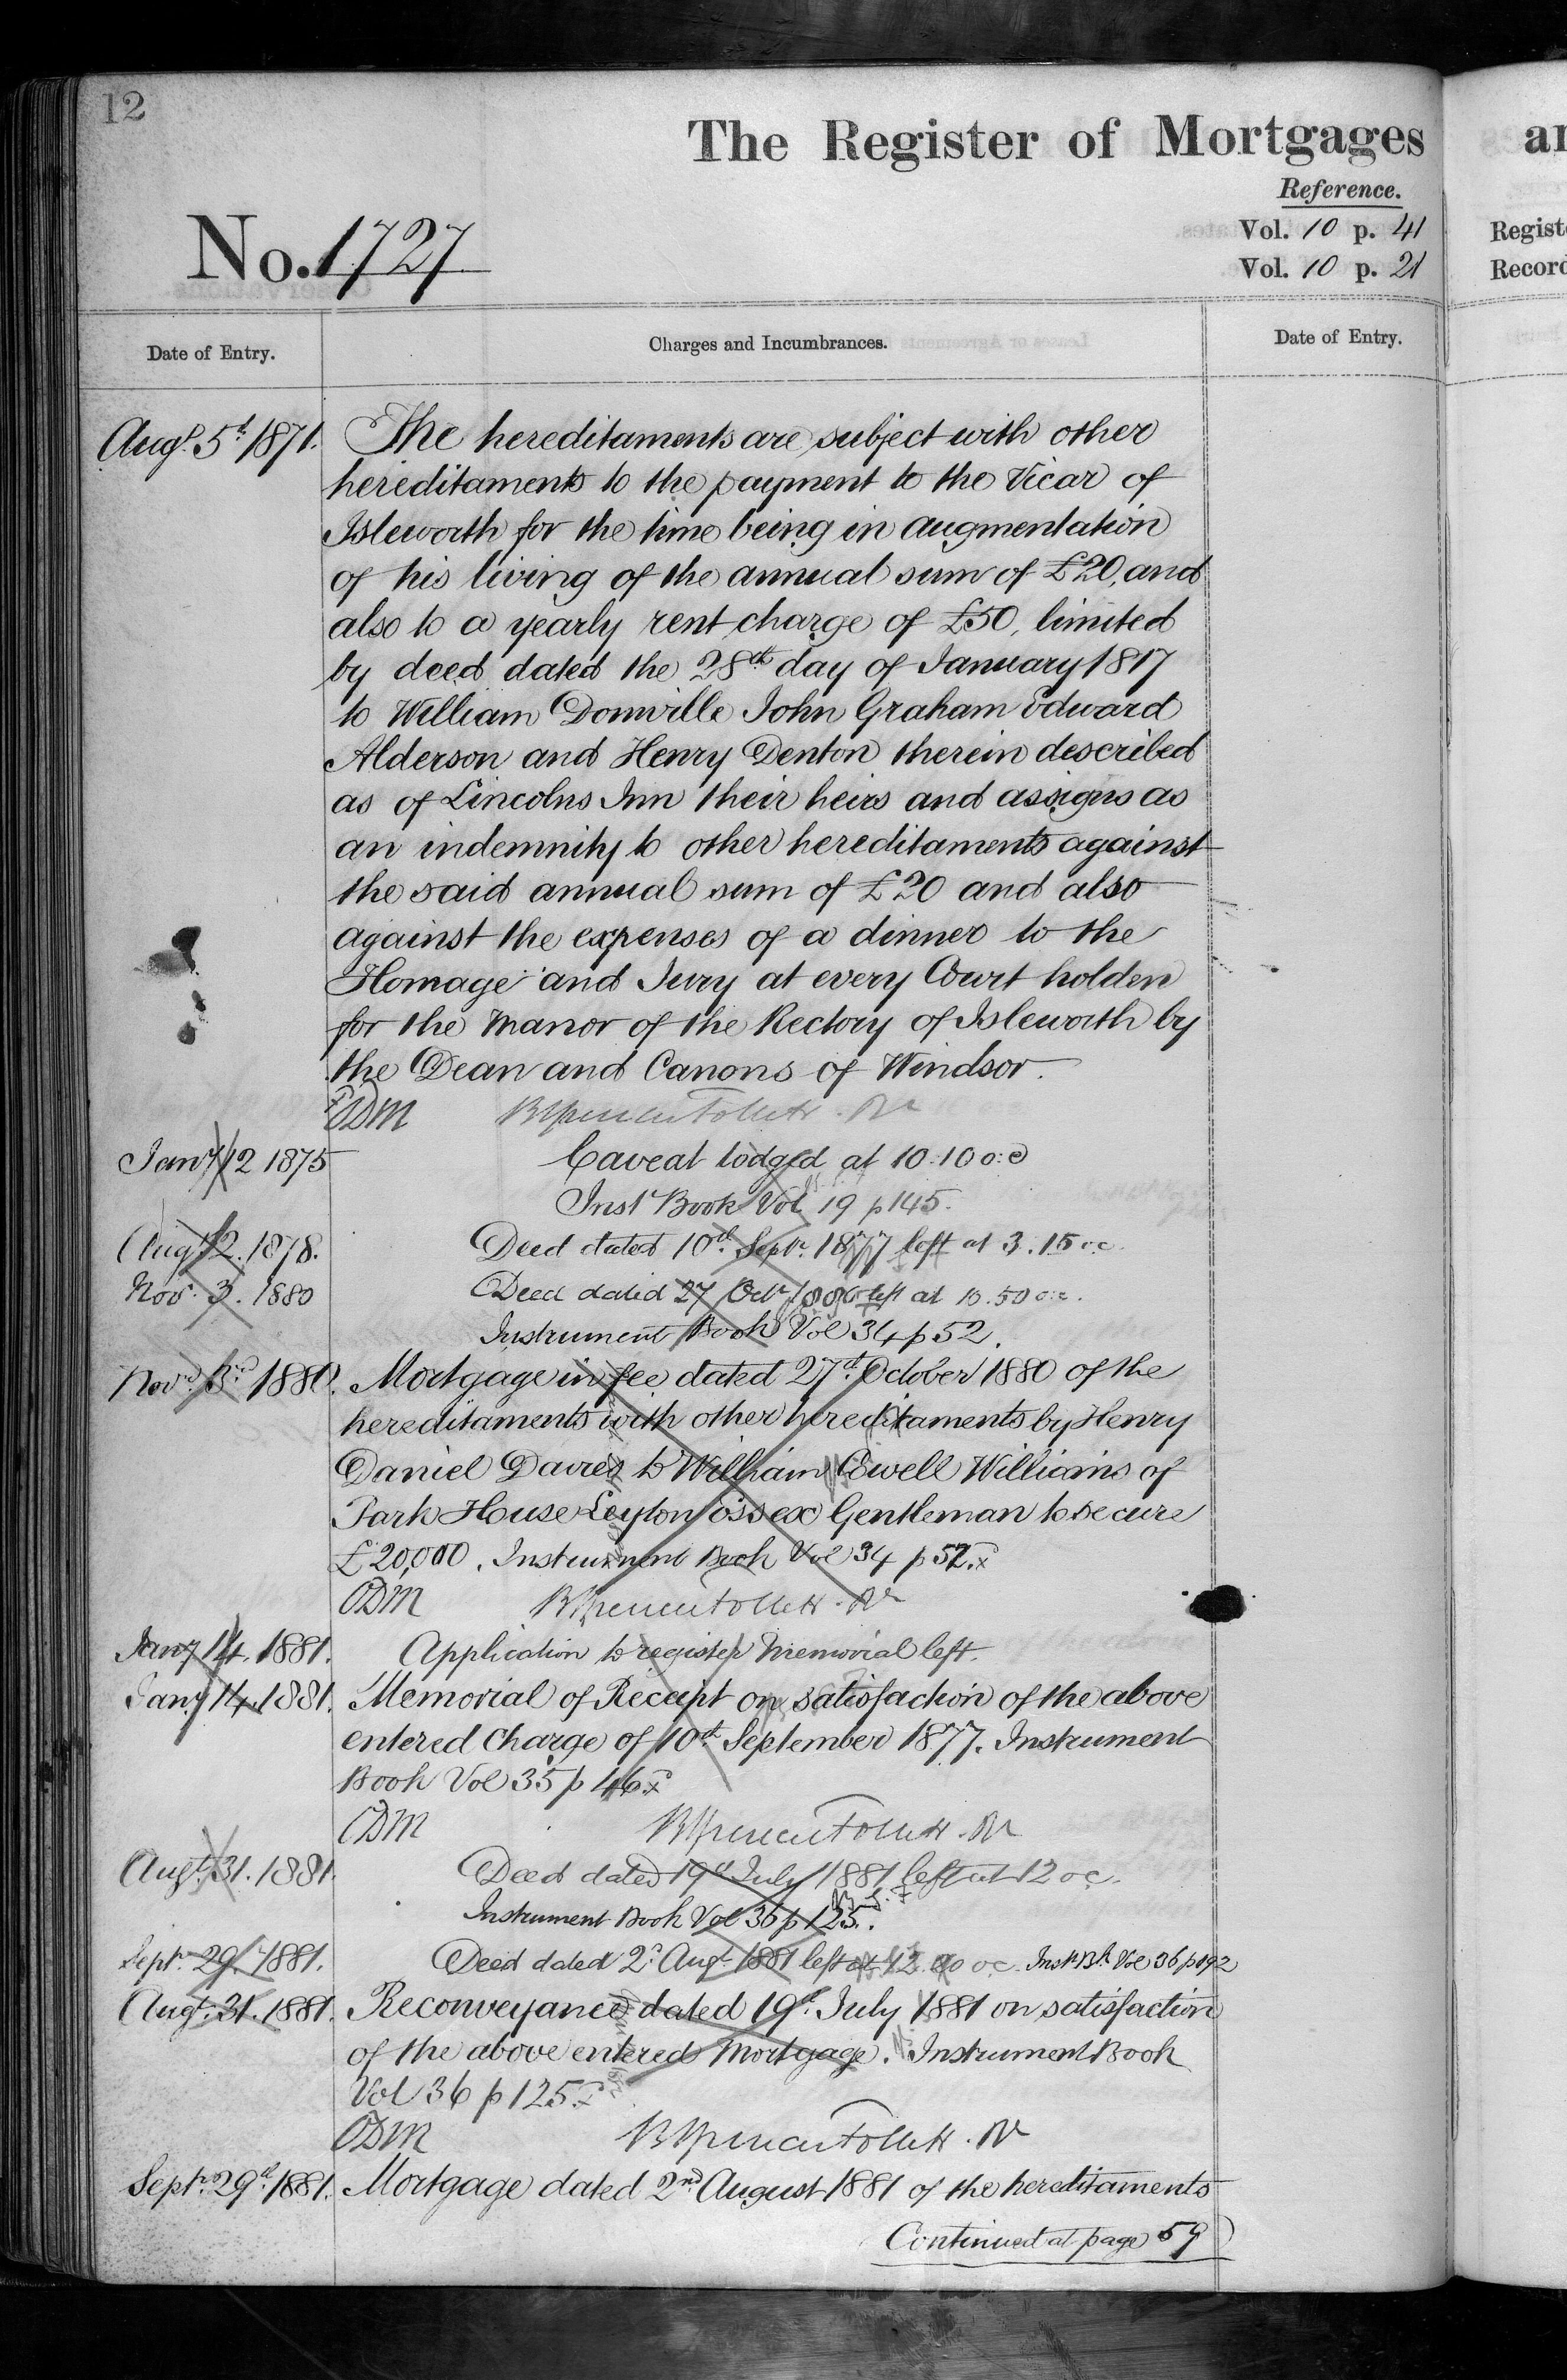 12
The Register of Mortgages
Reference.
No. 1727
Vol. 10 p. 41
Vol. 10 p. 21
Regist
Record
Date of Entry.
Charges and Incumbrances.
Date of Entry.
Augt. 5th 1871. The hereditaments are subject with other
hereditaments to the payment to the Vicar of
Isleworth for the time being in augmentation
of his living of the annual sum of £20, and
also to a yearly rent charge of £50, limited
by deed dated the 28th day of January 1817
to William Domville John Graham Edward
Alderson and Henry Denton therein described
as of Lincolns Inn their heirs and assigns as
an indemnity to other hereditaments against
the said annual sum of £20 and also
against the expenses of a dinner to the
Homage and Jury at every Court holden
for the Manor of the Rectory of Isleworth by
the Dean and Canons of Windsor.
Jany 12 1875 Caveat lodged at 10.10 o:c
Inst Book Vol 19 p 145.
Augt 2. 1878. Deed dated 10th Sept. 1877 left at 3.15 o.c.
Nov. 3. 1880 Deed dated 27 Octr 1880 left at 10.50 o:c.
Instrument Book Vol 34 p 52.
Novr. 3rd 1880. Mortgage in fee dated 27th October 1880 of the
hereditaments with other hereditaments by Henry
Daniel Davies to William Ewell Williams of
Park House Leyton Essex Gentleman to secure
£20,000. Instrument Book Vol 34 p 52.
Jany 14. 1881. Application to register Memorial left.
Jany 14. 1881. Memorial of Receipt on satisfaction of the above
entered Charge of 10th September 1877. Instrument
Book Vol 35 p 46
Augt. 31. 1881. Deed dated 19th July 1881 left at 12 o.c.
Instrument Book Vol 36 p 125.
Septr. 29. 1881. Deed dated 2d Augt 1881 left at 12 o.c. Inst. Bk. Vol 36 p 192
Augt. 31. 1881. Reconveyance dated 19th July 1881 on satisfaction
of the above entered Mortgage. Instrument Book
Vol 36 p 125.
Septr. 29th 1881. Mortgage dated 2nd August 1881 of the hereditaments
Continued at page 59